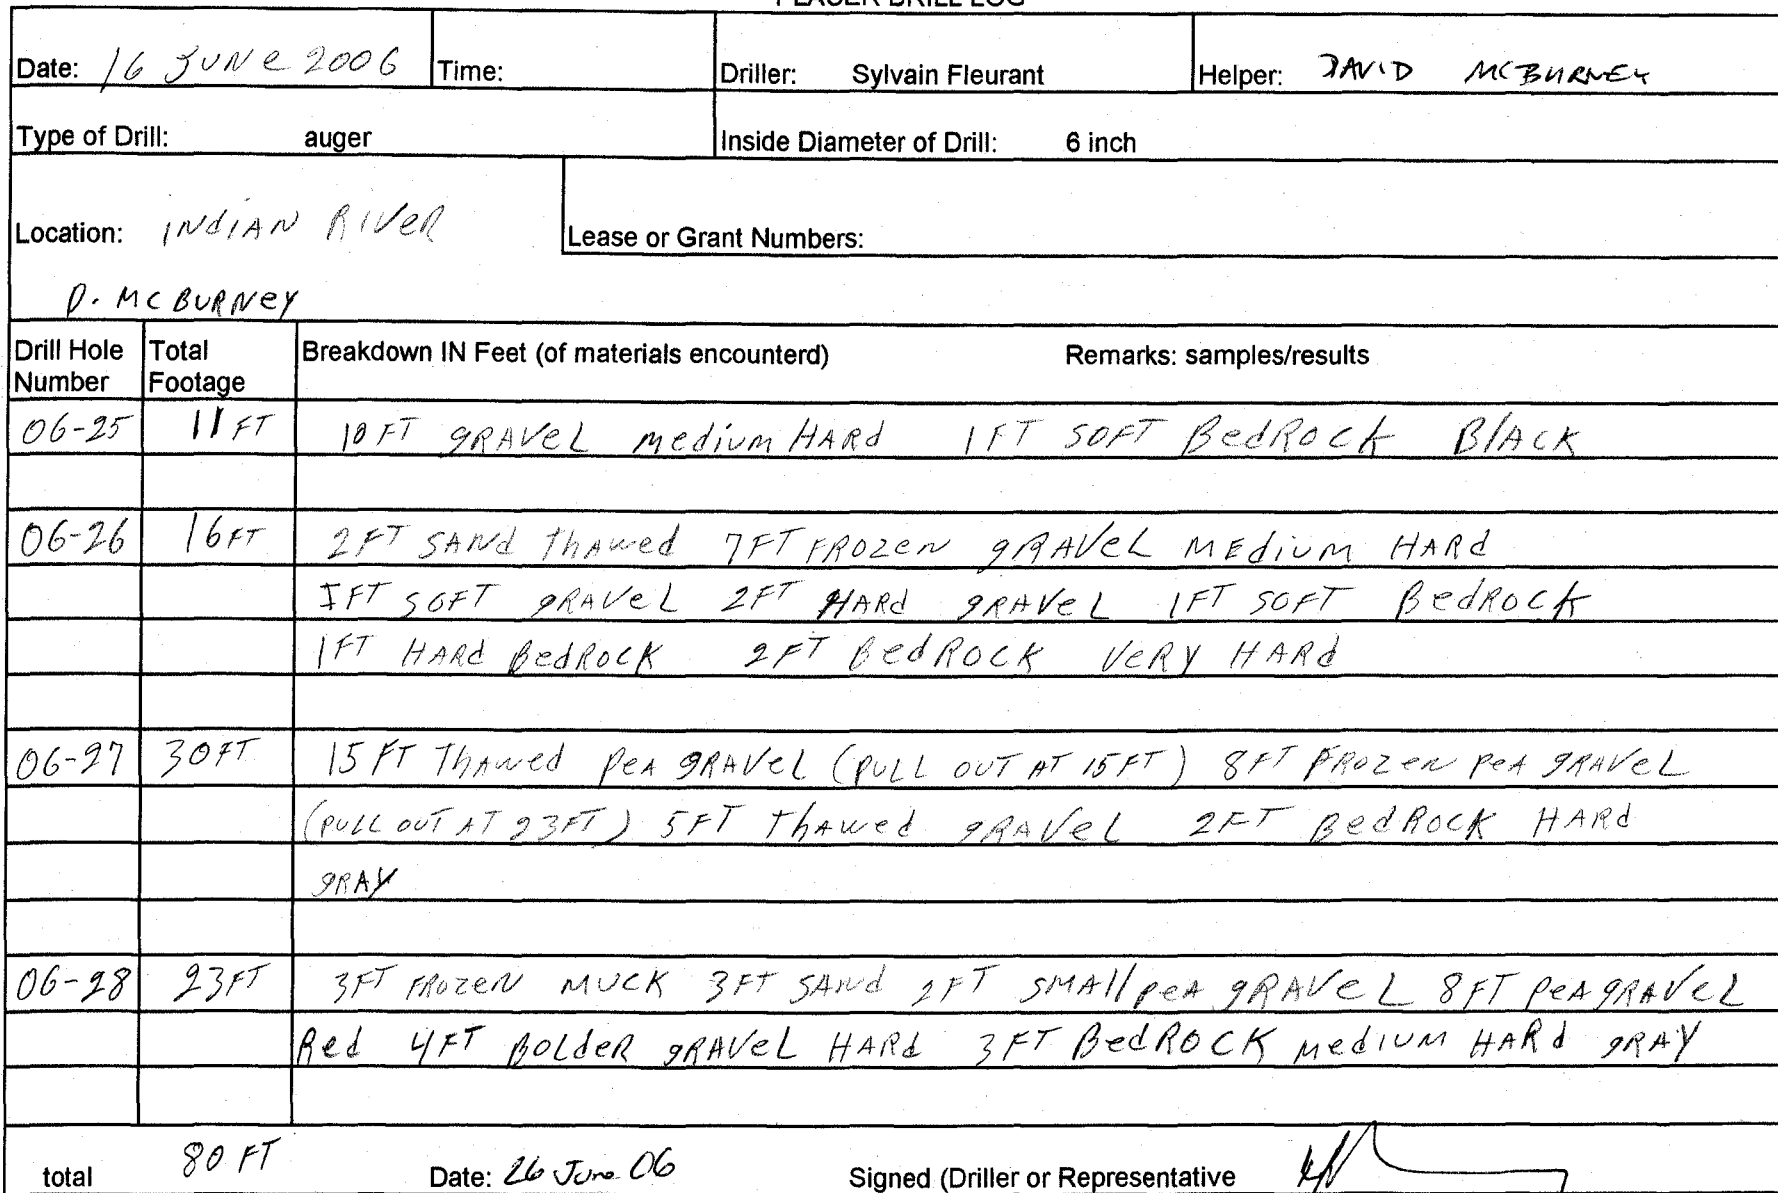 PLACER DRILL LOG
Date: 16 JUNE 2006 Time: Driller: Sylvain Fleurant Helper: DAVID MCBURNEY
Type of Drill: auger Inside Diameter of Drill: 6 inch
Location: INDIAN RIVER Lease or Grant Numbers:
D. MCBURNEY
Drill Hole Number Total Footage Breakdown IN Feet (of materials encounterd) Remarks: samples/results
06-25 11 FT 10 FT GRAVEL medium HARD 1 FT SOFT BedROCK BlACK
06-26 16 FT 2 FT SANd ThAwed 7 FT FROZEN gRAVEL MEdium HARd
1 FT SOFT gRAVEL 2 FT HARd gRAVEL 1 FT SOFT BedROCK
1 FT HARd BedROCK 2 FT BedROCK VERY HARd
06-27 30 FT 15 FT ThAwed PeA gRAVEL (PULL OUT AT 15 FT) 8 FT FROZEN PeA gRAVEL
(PULL OUT AT 23 FT) 5 FT ThAwed gRAVEL 2 FT BedROCK HARd
gRAY
06-28 23 FT 3 FT FROZEN MUCK 3 FT SANd 2 FT SMAll peA gRAVEL 8 FT peA gRAVEL
Red 4 FT BOLdER gRAVEL HARd 3 FT BedROCK MedIUM HARd gRAY
total 80 FT Date: 26 June 06 Signed (Driller or Representative